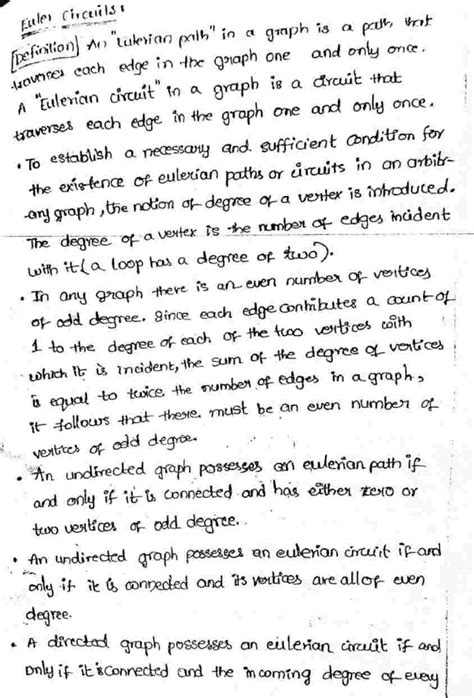 Euler Circuits:
[Definition] An "eulerian path" in a graph is a path that
traverses each edge in the graph one and only once.
A "Eulerian circuit" in a graph is a circuit that
traverses each edge in the graph one and only once.
• To establish a necessary and sufficient condition for
the existence of eulerian paths or circuits in an arbitr-
-ary graph, the notion of degree of a vertex is introduced.
The degree of a vertex is the number of edges incident
with it (a loop has a degree of two).
• In any graph there is an even number of vertices
of odd degree. Since each edge contributes a count of
1 to the degree of each of the two vertices with
which it is incident, the sum of the degree of vertices
is equal to twice the number of edges in a graph,
it follows that there must be an even number of
vertices of odd degree.
• An undirected graph possesses an eulerian path if
and only if it is connected and has either zero or
two vertices of odd degree.
• An undirected graph possesses an eulerian circuit if and
only if it is connected and its vertices are all of even
degree.
• A directed graph possesses an eulerian circuit if and
only if it is connected and the incoming degree of every